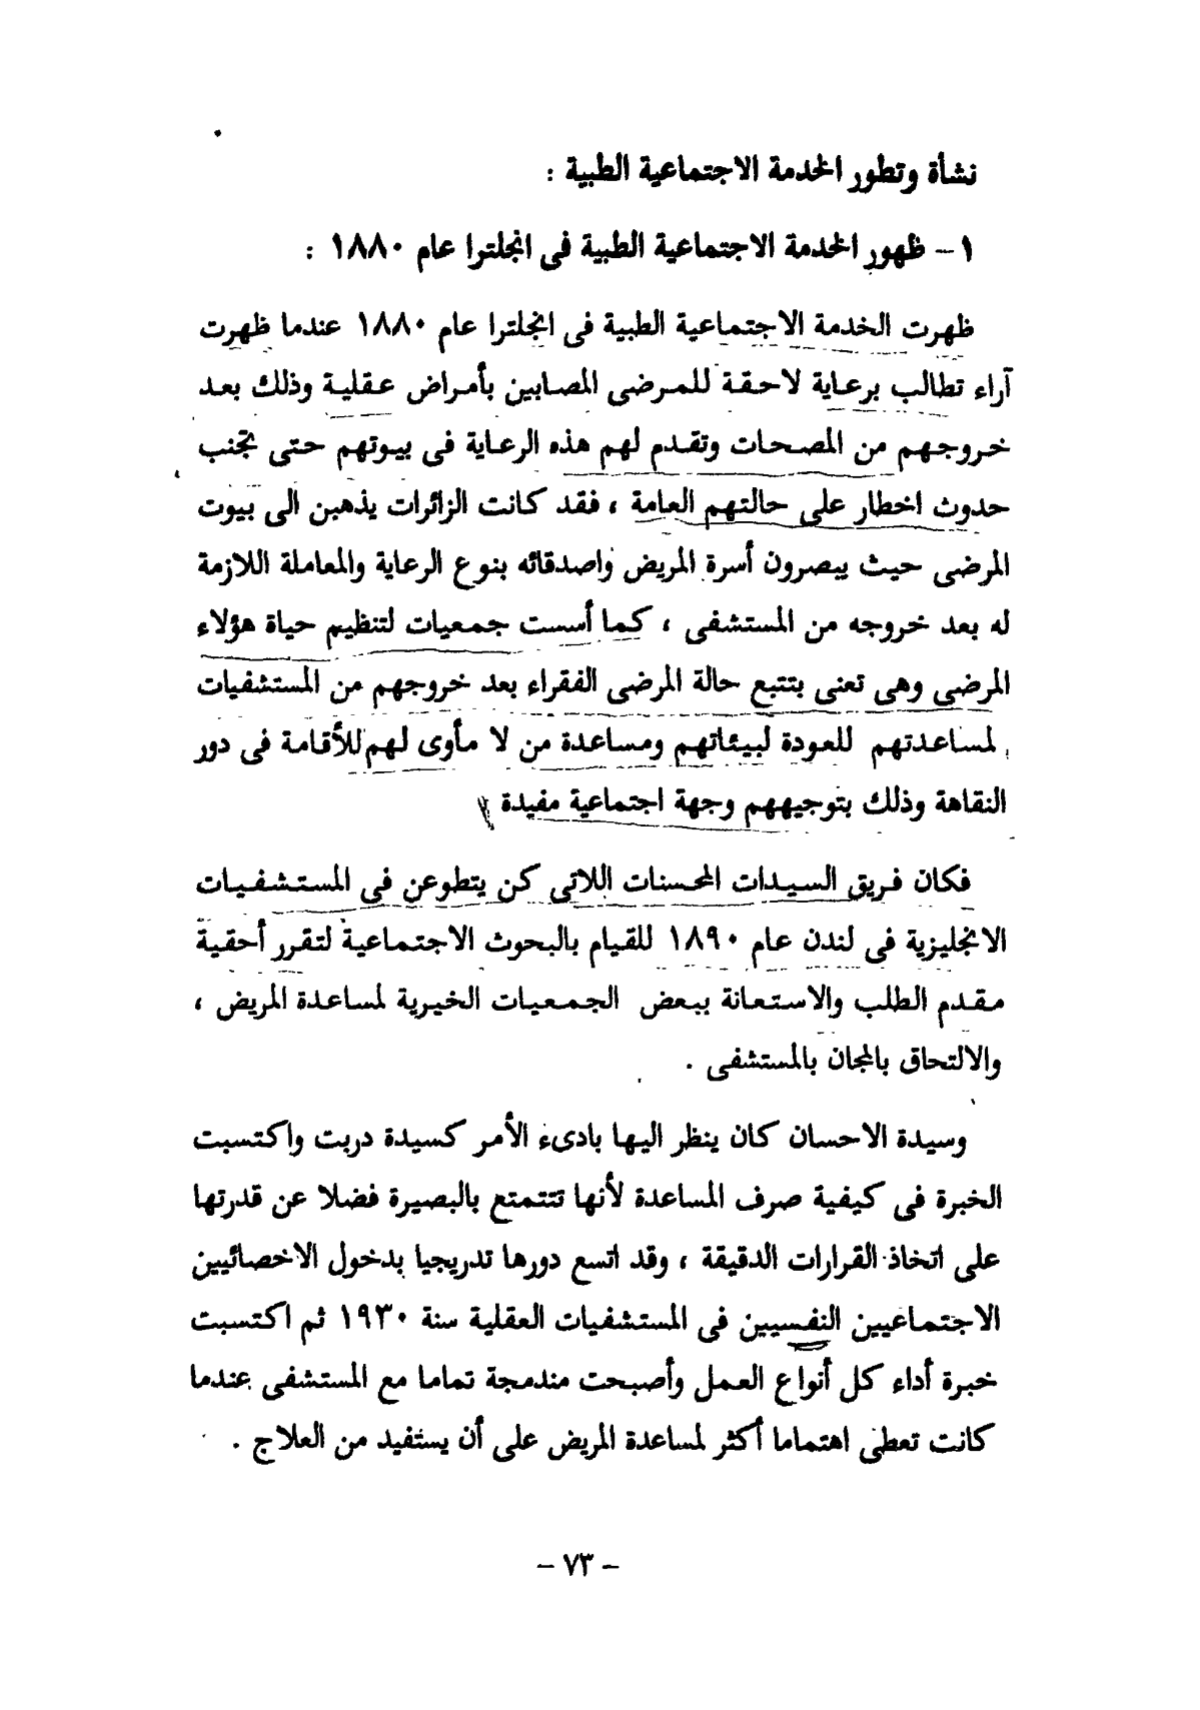 نشأة وتطور الخدمة الاجتماعية الطبية :
١ - ظهور الخدمة الاجتماعية الطبية فى انجلترا عام ١٨٨٠ :
ظهرت الخدمة الاجتماعية الطبية فى انجلترا عام ١٨٨٠ عندما ظهرت
آراء تطالب برعاية لاحقة للمرضى المصابين بأمراض عقلية وذلك بعد
خروجهم من المصحات وتقدم لهم هذه الرعاية فى بيوتهم حتى تجنب
حدوث اخطار على حالتهم العامة ، فقد كانت الزائرات يذهبن الى بيوت
المرضى حيث يبصرون أسرة المريض واصدقائه بنوع الرعاية والمعاملة اللازمة
له بعد خروجه من المستشفى ، كما أسست جمعيات لتنظيم حياة هؤلاء
المرضى وهى تعنى بتتبع حالة المرضى الفقراء بعد خروجهم من المستشفيات
لمساعدتهم للعودة لبيئاتهم ومساعدة من لا مأوى لهم للأقامة فى دور
النقاهة وذلك بتوجيههم وجهة اجتماعية مفيدة
فكان فريق السيدات المحسنات اللاتى كن يتطوعن فى المستشفيات
الانجليزية فى لندن عام ١٨٩٠ للقيام بالبحوث الاجتماعية لتقرر أحقية
مقدم الطلب والاستعانة ببعض الجمعيات الخيرية لمساعدة المريض ،
والالتحاق بالمجان بالمستشفى .
وسيدة الاحسان كان ينظر اليها بادىء الأمر كسيدة دربت واكتسبت
الخبرة فى كيفية صرف المساعدة لأنها تتمتع بالبصيرة فضلا عن قدرتها
على اتخاذ القرارات الدقيقة ، وقد اتسع دورها تدريجيا بدخول الاخصائيين
الاجتماعيين النفسيين فى المستشفيات العقلية سنة ١٩٣٠ ثم اكتسبت
خبرة أداء كل أنواع العمل وأصبحت مندمجة تماما مع المستشفى عندما
كانت تعطى اهتماما أكثر لمساعدة المريض على أن يستفيد من العلاج .
- ٧٣ -